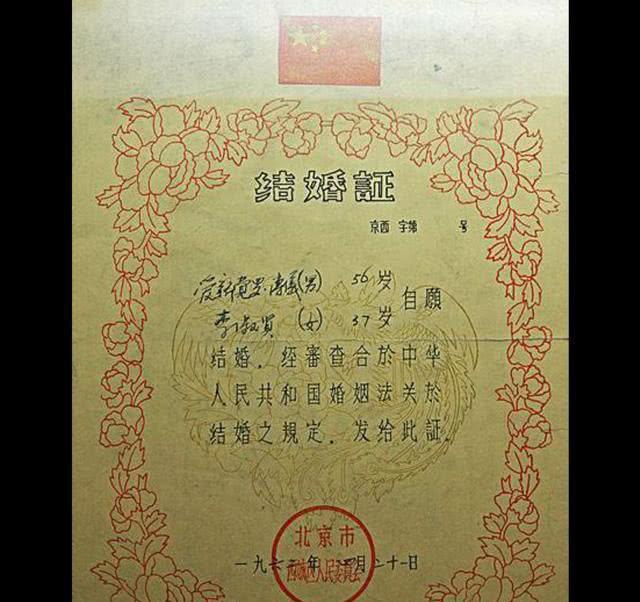 结婚証
京西 字第 号
爱新觉罗·溥儀(男) 56岁
李淑贤(女) 37岁 自願
结婚．经審查合於中华
人民共和国婚姻法关於
结婚之規定．发给此証．
北京市
西城区人民委員会
一九六二年 月二十一日